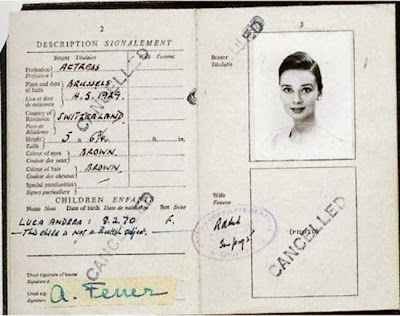 2
DESCRIPTION SIGNALEMENT
Bearer Titulaire Wife Femme
Profession ACTRESS
Profession
Place and date BRUSSELS
of birth 4.5.1929.
Lieu et date
de naissance
Country of SWITZERLAND
Residence
Pays de
Résidence
Height 5
Taille
Colour of eyes BROWN.
Couleur des yeux
Colour of hair BROWN.
Couleur des cheveux
Special peculiarities
Signes particuliers
CANCELLED
CHILDREN ENFANTS
Name Nom Date of birth Date de naissance Sex Sexe
LUCA ANDREA: 8.2.70 F.
This child is not a British subject.
CANCELLED
Usual signature of bearer
Signature
Usual
Signature
A. Ferrer
3
Bearer
Titulaire
CANCELLED
Wife
Femme
(PHOTO)
CANCELLED